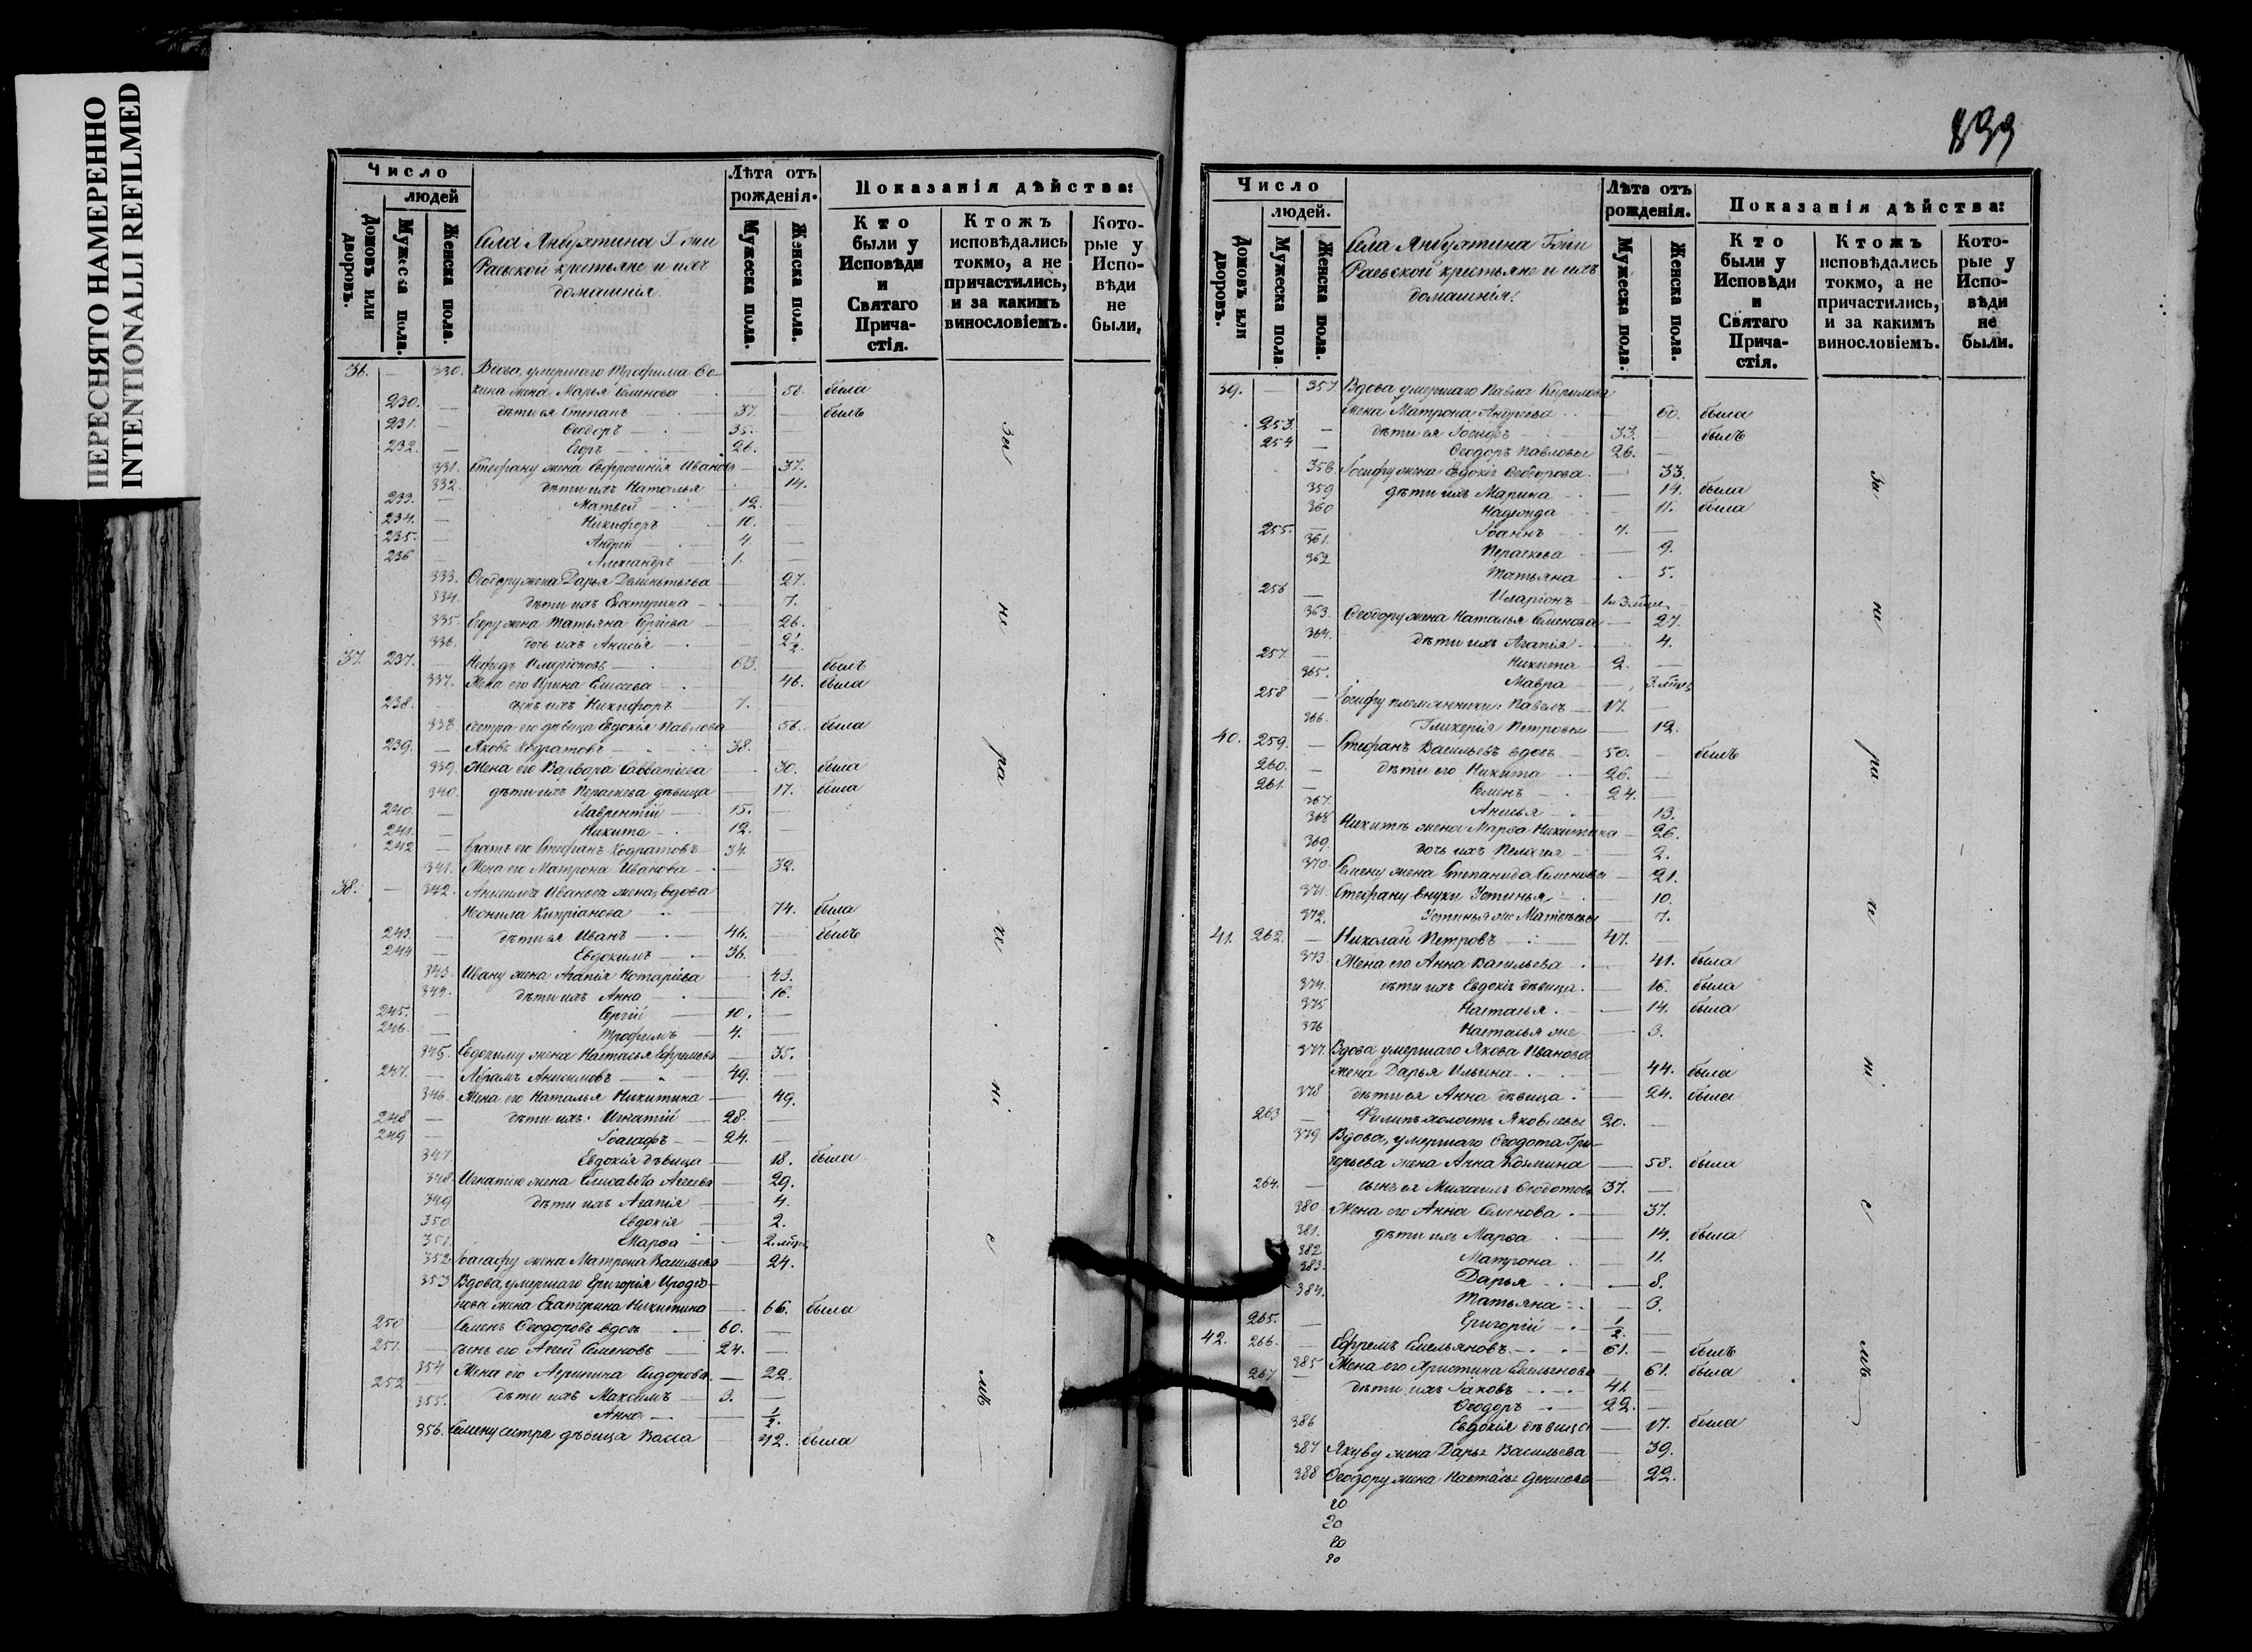 ПЕРЕСНЯТО НАМЕРЕННО
INTENTIONALLI REFILMED
Число
людей
Домовъ или дворовъ.
Мужеска пола.
Женска пола.
Села Янбухтина Г-жи
Раевской крестьяне и ихъ
домашнія.
Лѣта отъ рожденія.
Мужеска пола.
Женска пола.
Показанія дѣйства:
Кто были у Исповѣди и Святаго Причастія.
Ктожъ исповѣдались токмо, а не причастились, и за какимъ винословіемъ.
Которые у Исповѣди не были.
36. — 330. Вдова, умершаго Трофима
жена Марья Семенова — 58. была
230. — дѣти ея Степанъ — 37. — былъ
231. — Ѳеодоръ — 35. —
232. — Егоръ — 26. —
331. Стефану жена Евфросинія Иванова — 37.
332. дѣти ихъ Наталья — 14.
233. — Матвей — 12. —
234. — Никифоръ — 10. —
235. — Андрей — 4. —
236 — Александръ — 1. —
333. Ѳеодору жена Дарья Деменьтьева — 27.
334. дѣти ихъ Екатерина — 7.
335. Егору жена Татьяна Сергіева — 26.
336. дочь ихъ Анисія — 2½
37. 237. — Нефедъ Иларіоновъ — 63. — былъ
337. Жена его Ирина Елисеева — 46. была
238. — сынъ ихъ Никифоръ — 7. —
338. сестра его дѣвица Евдокія Павлова — 56. была
239. — Яковъ Кодратовъ — 38. —
339. Жена его Варвара Савватіева — 30. была
340. дѣти ихъ Пераскева дѣвица — 17. была
240. — Лаврентій — 15. —
241. — Никита — 12. —
242 — братъ его Стефанъ Кодратовъ — 34. —
341. Жена его Матрона Иванова — 32.
38. — 342. Анисима Иванова жена, вдова
Неонила Кипріанова — 74. была
243. — дѣти ея Иванъ — 46. — былъ
244 — Евдокимъ — 36. —
343. Ивану жена Агапія — 43.
344. дѣти ихъ Анна — 16.
245. — Сергій — 10. —
246. — Трофимъ — 4. —
345. Евдокиму жена Настасья Ефремова — 35.
247. — Абрамъ Анисимовъ — 49. —
346. Жена его Наталья Никитина — 49.
248 — дѣти ихъ: Игнатій — 28. —
249 — Іоасафъ — 24. —
347. Евдокія дѣвица — 18. была
348. Игнатію жена Елисавета Агеева — 29.
349 дѣти ихъ Агапія — 4.
350. Евдокія — 2.
351. Марѳа — 2. мѣся
352. Іоасафу жена Матрона Васильева — 24.
353 Вдова, умершаго Григорія
жена Екатерина Никитина — 66. была
250 — Семенъ Ѳеодоровъ вдовъ — 60. —
251. — сынъ его Агей Семеновъ — 24. —
354 Жена его Агрипина Сидорова — 22.
252 дѣти ихъ Максимъ — 3. —
355. Анна — ½.
356. Семену сестра дѣвица Васса — 42. была
За не ра че ні е мъ
899
Число
людей.
Домовъ или дворовъ.
Мужеска пола
Женска пола.
Села Янбухтина Г-жи
Раевской крестьяне и ихъ
домашнія.
Лѣта отъ рожденія.
Мужеска пола.
Женска пола.
Показанія дѣйства:
Кто были у Исповѣди и Святаго Причастія.
Ктожъ исповѣдались токмо, а не причастились, и за какимъ винословіемъ.
Которые у Исповѣди не были.
39. — 357 Вдова, умершаго Павла Кирилова
жена Матрона Андреева — 60. была
253. — дѣти ея Іосифъ — 33. — былъ
254 — Ѳеодоръ Павловы 26. —
358. Іосифу жена Евдокія Ѳеодорова — 33.
359 дѣти ихъ Марина — 14. была
360 Надежда — 11. была
255. — Іоаннъ — 7. —
361. Пераскева — 9.
362 Татьяна — 5.
256 — Иларіонъ —
363. Ѳеодору жена Наталья Семенова — 27.
364. дѣти ихъ Агапія — 4.
257. — Никита — 2. —
365. Мавра — 3 мѣся
258 — Іосифу племянники: Павелъ — 17. —
366. Гликерія Петровы — 12.
40. 259. — Стефанъ Васильевъ вдовъ — 50. — былъ
260. — дѣти его Никита — 26. —
261. — Семенъ — 24. —
367. Анисья — 13.
368 Никитѣ жена Марѳа Никитина — 26.
369. дочь ихъ Пелагея — 2.
370. Семену жена Степанида Семенова — 21.
371. Стефану внуки Устинья — 10.
372. Устинья же Матвеевы — 7.
41. 262. — Николай Петровъ — 47. —
373 Жена его Анна Васильева — 41. была
374. дѣти ихъ Евдокія дѣвица. — 16. была
375 Настасья. — 14. была
376 Настасья же — 3.
377. Вдова умершаго Якова Иванова
жена Дарья Ильина — 44. была
378 дѣти ея Анна дѣвица — 24. была
263 — Филипъ холостъ Яковлевы 20. —
379 Вдова, умершаго Ѳеодота Гри-
горьева жена Анна Козмина — 58. была
264. — сынъ ея Михаилъ Ѳеодотовъ 37. —
380 Жена его Анна Семенова — 37.
381. дѣти ихъ Марѳа — 14. была
382 Матрона — 11.
383. Дарья — 8.
384. Татьяна — 3.
265. — Григорій — ½. —
42. 266. — Ефремъ Емельяновъ — 61. — былъ
385 Жена его Христина Емельянова — 61. была
267 — дѣти ихъ Іаковъ — 41 —
Ѳеодоръ — 22. —
386 Евдокія дѣвица — 17. была
387 Якову жена Дарья Васильева — 39.
388 Ѳеодору жена Настасья Денисова — 22.
За не ра че ні е мъ
20
20
20
20